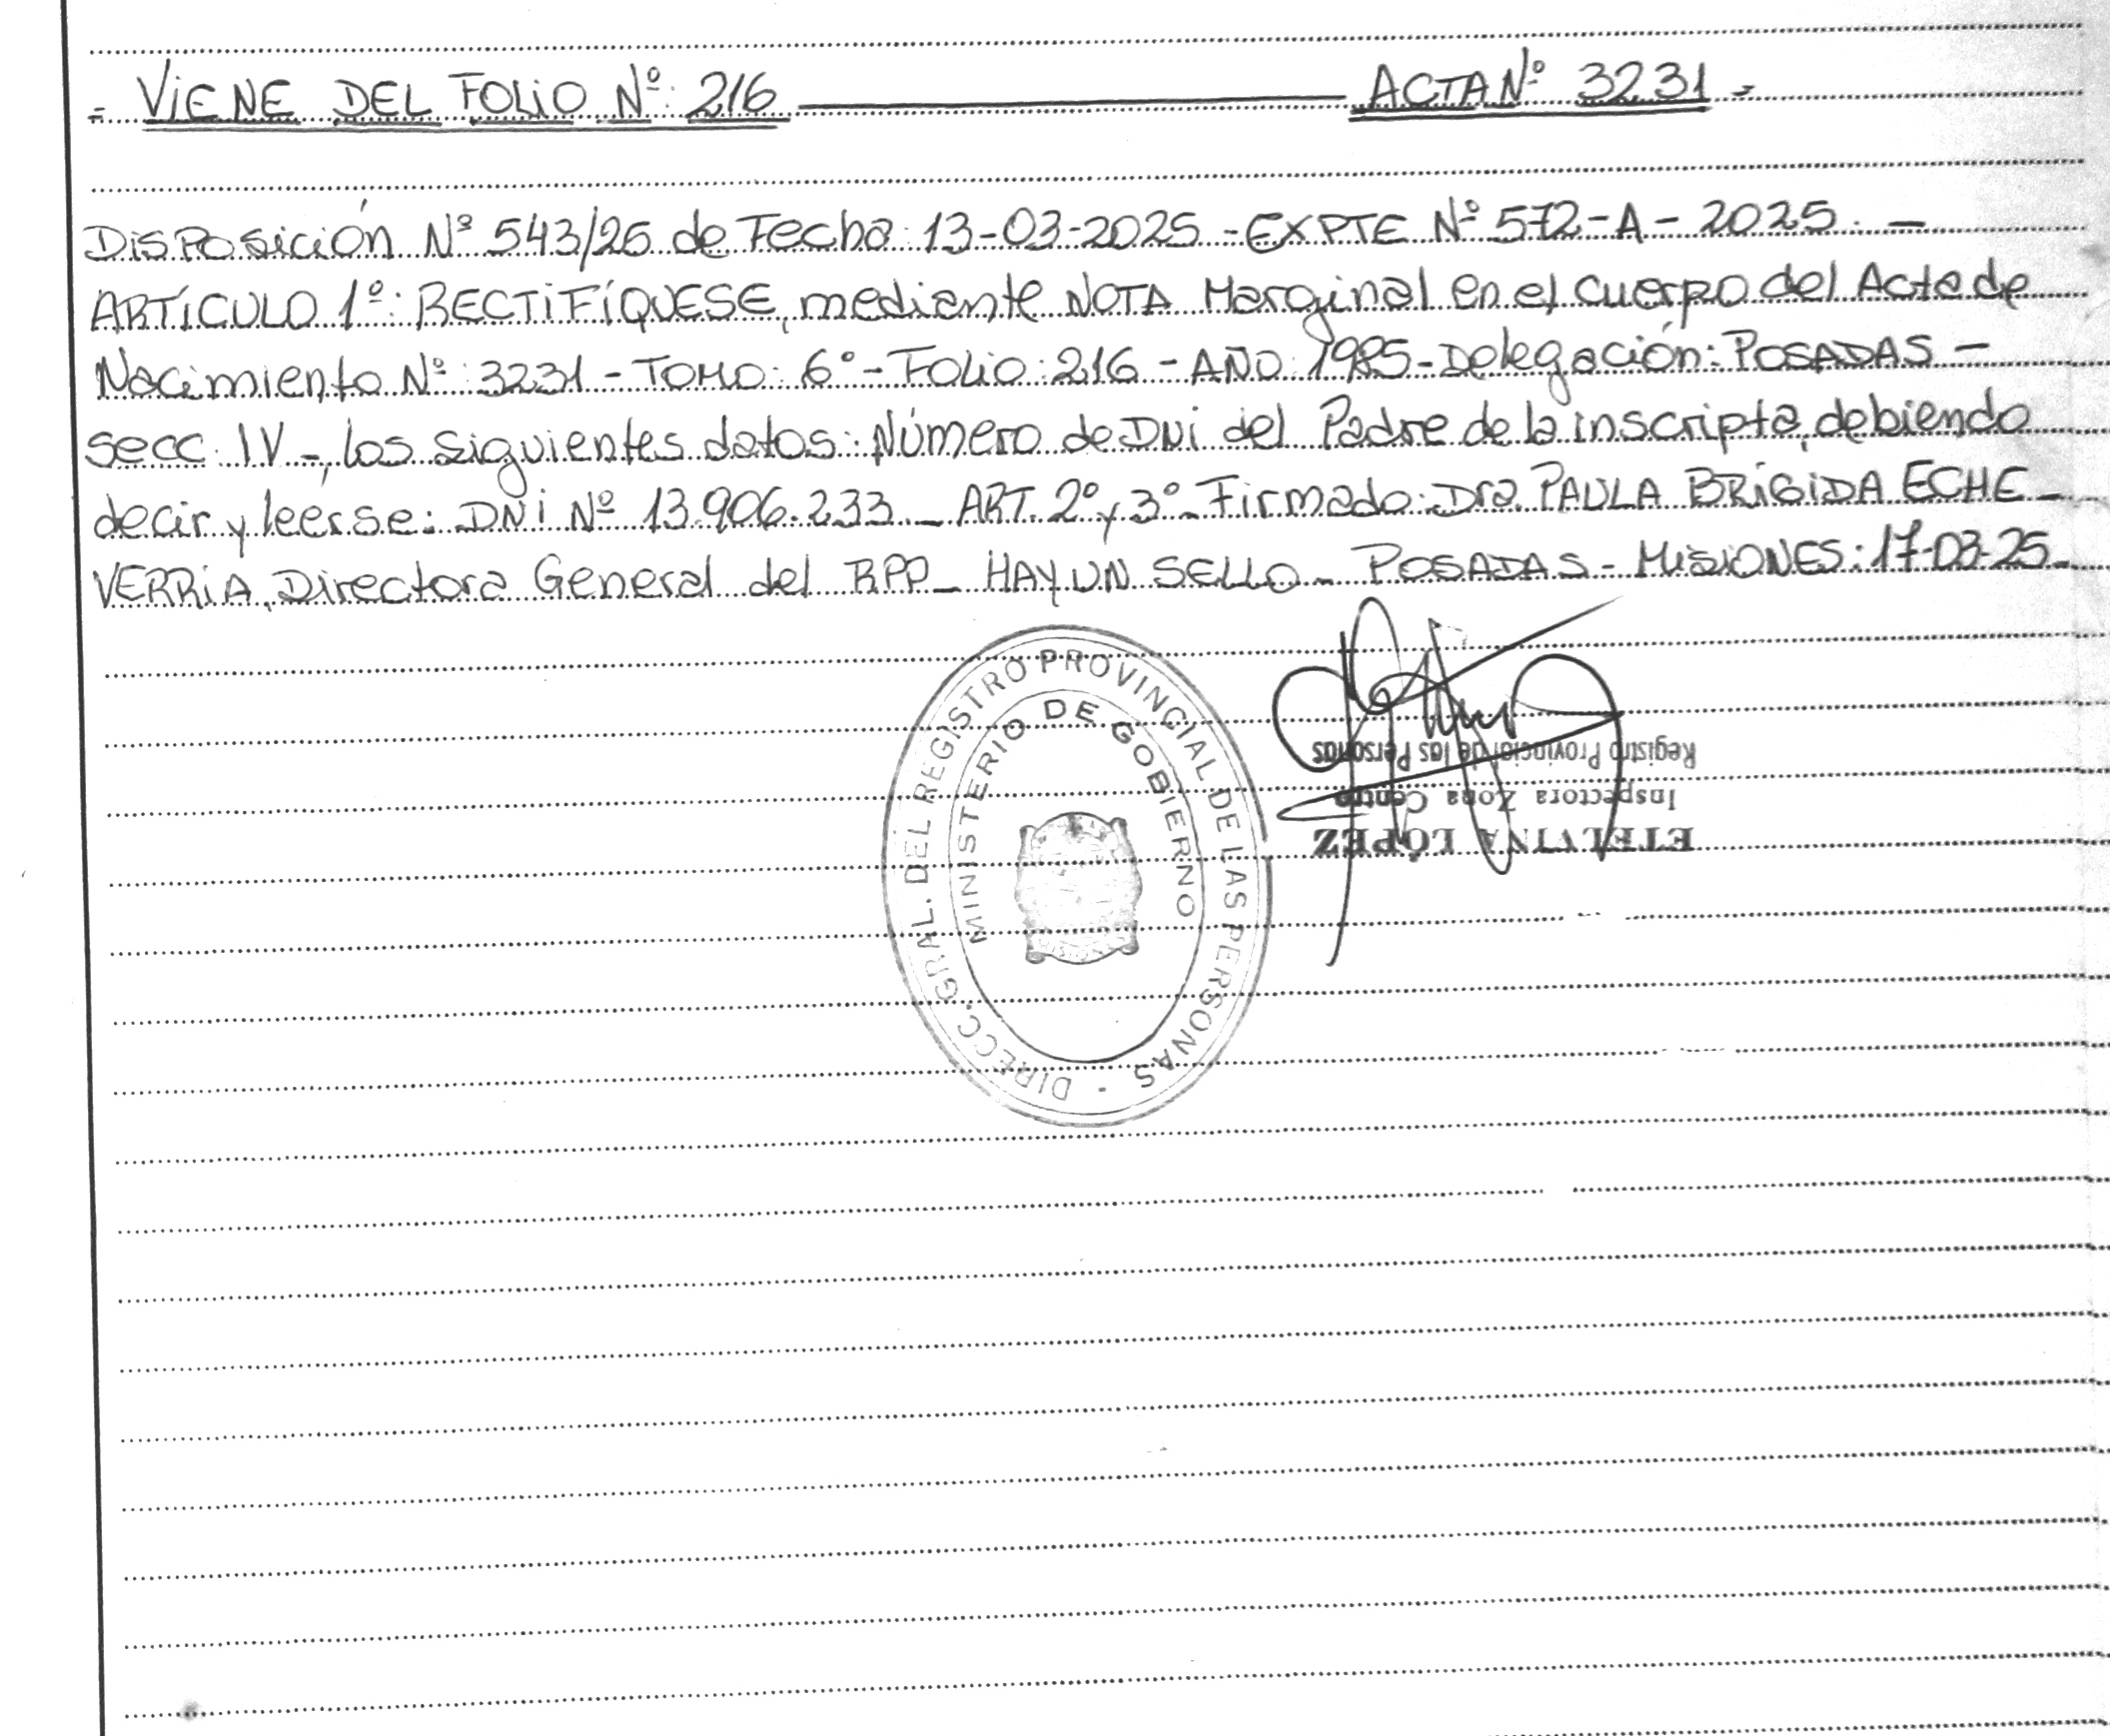 - VIENE DEL FOLIO Nº: 216 ACTA Nº 3231 -
DISPOSICIÓN Nº 543/25 de Fecha: 13-03-2025 - EXPTE Nº 572-A-2025. -
ARTÍCULO 1º: RECTIFÍQUESE, mediante NOTA Marginal en el cuerpo del Acta de
Nacimiento Nº: 3231 - TOMO: 6° - Folio: 216 - AÑO: 1985 - Delegación: POSADAS -
secc. IV -, los siguientes datos: Número de DNI del Padre de la inscripta, debiendo
decir y leerse: DNI Nº 13.906.233. - ART. 2° y 3° - Firmado: Dra. PAULA BRÍGIDA ECHE -
VERRIA, Directora General del RPP - HAY UN SELLO - POSADAS - MISIONES: 17-03-25 -
DIRECC. GRAL. DEL REGISTRO PROVINCIAL DE LAS PERSONAS -
MINISTERIO DE GOBIERNO
ETELVINA LÓPEZ
Inspectora Zona Centro
Registro Provincial de las Personas